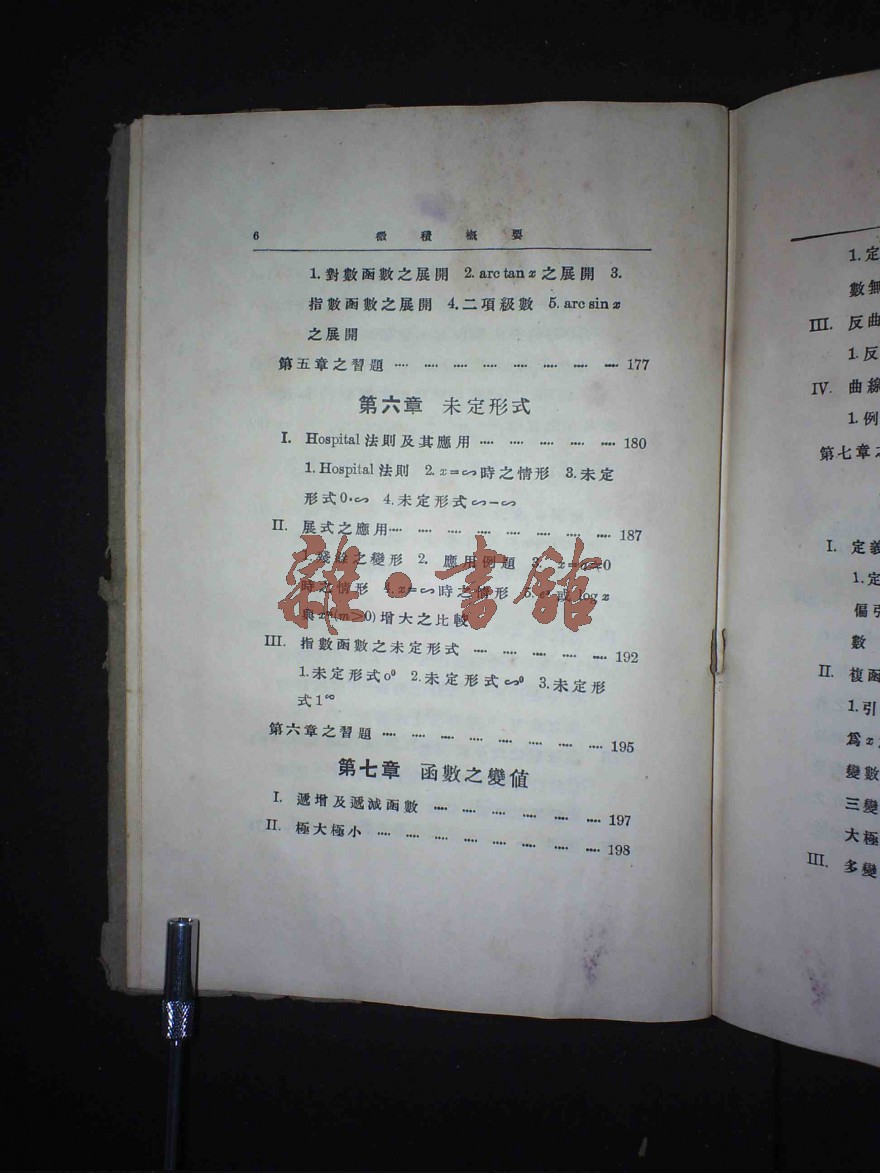 6 微積概要
1.對數函數之展開 2.arc tan x 之展開 3.
指數函數之展開 4.二項級數 5.arc sin x
之展開
第五章之習題 ···· ···· ···· ···· ···· ···· ···· ···· 177
第六章 未定形式
I. Hospital 法則及其應用 ···· ···· ···· ···· ···· 180
1.Hospital 法則 2.x=∽時之情形 3.未定
形式0·∽ 4.未定形式∽−∽
II. 展式之應用···· ···· ···· ···· ···· ···· ···· ···· 187
1.殘餘之變形 2. 應用例題 3. x=a≠0
時之情形 4.x=∽時之情形 5.eˣ或 log x
與xᵐ(m>0)增大之比較
III. 指數函數之未定形式 ···· ···· ···· ···· ···· 192
1.未定形式0⁰ 2.未定形式∽⁰ 3.未定形
式1^∞
第六章之習題 ···· ···· ···· ···· ···· ···· ···· ···· 195
第七章 函數之變值
I. 遞增及遞減函數 ···· ···· ···· ···· ···· ···· 197
II. 極大極小 ···· ···· ···· ···· ···· ···· ···· ···· 198
雜·書館
1.定
數無
III. 反曲
1.反
IV. 曲線
1.例
第七章之
I. 定義
1.定
偏引
數
II. 複函
1.引
爲x
變數
三變
大極
III. 多變